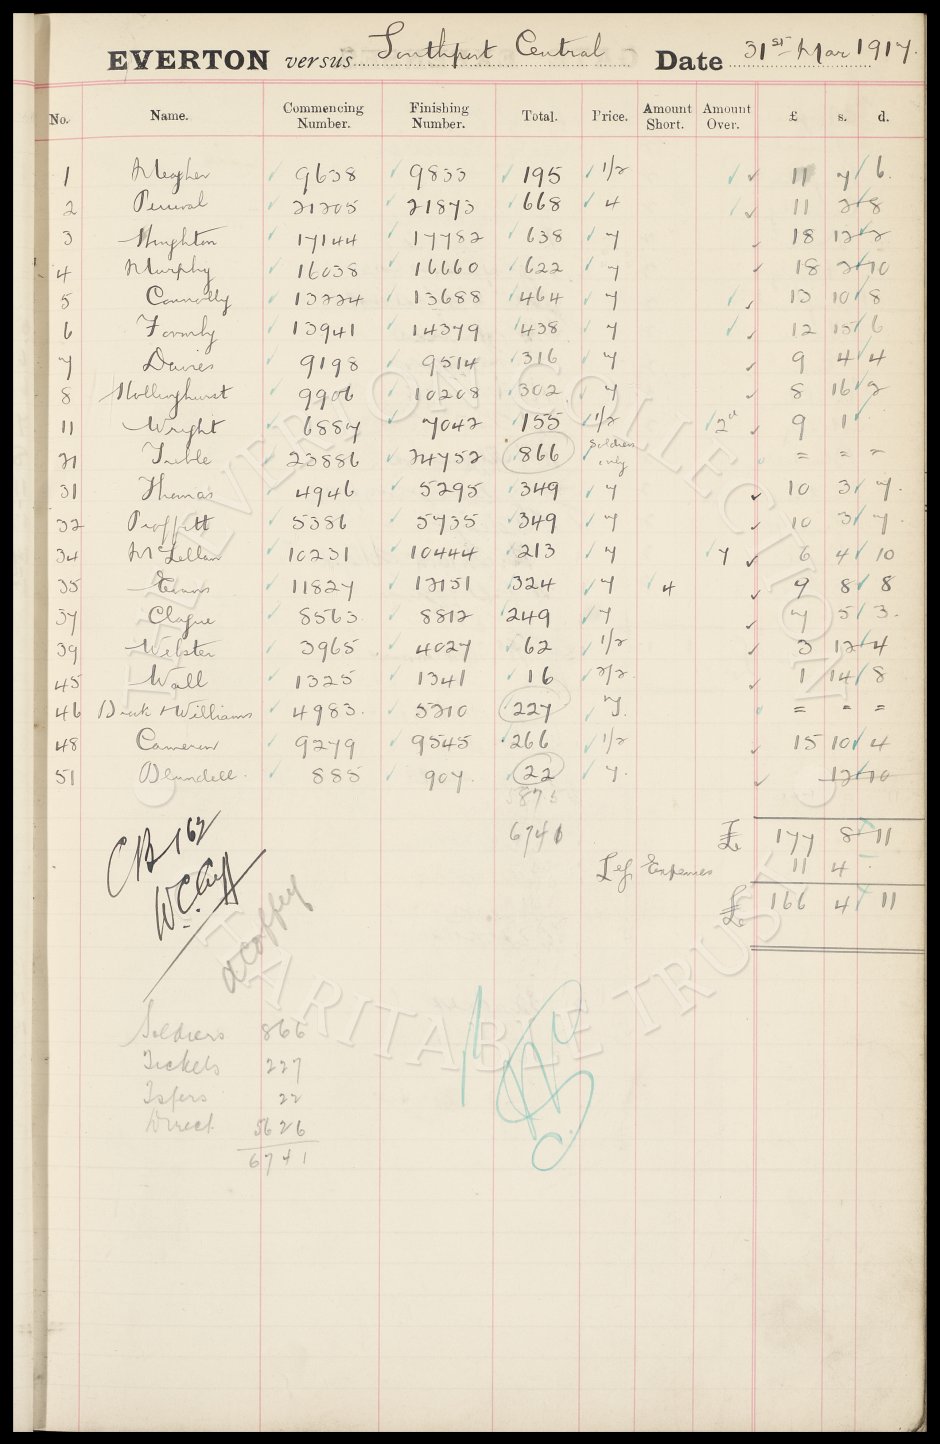 EVERTON versus Southport Central Date 31st Mar 1917.
No. Name. Commencing Number. Finishing Number. Total. Price. Amount Short. Amount Over. £ s. d.
1 Meagher 9638 9833 195 1/2 11 7 6
2 Percival 21205 21873 668 4 11 2 8
3 Houghton 17144 17782 638 7 18 12 2
4 Murphy 16038 16660 622 7 18 2 10
5 Connolly 13224 13688 464 7 13 10 8
6 Formby 13941 14379 438 7 12 15 6
7 Davies 9198 9514 316 7 9 4 4
8 Hollinghurst 9906 10208 302 7 8 16 2
11 Wright 6887 7042 155 1/2 2d 9 1
21 Treble 23886 24752 866 Soldiers only = = =
31 Thomas 4946 5295 349 7 10 3 7
32 Proffitt 5386 5735 349 7 10 3 7
34 McLellan 10231 10444 213 7 7 6 4 10
35 Evans 11827 12151 324 7 4 9 8 8
37 Clague 8563 8812 249 7 7 5 3
39 Webster 3965 4027 62 1/2 3 12 4
45 Wall 1325 1341 16 2/2 1 14 8
46 & Williams 4983 5210 227 = = =
48 Cameron 9279 9545 266 1/2 15 10 4
51 Blundell 885 907 22 7 12 10
6741
£ 177 8 11
Less Expenses 11 4
£ 166 4 11
CB 162
Soldiers 866
Tickets 227
Tsfers 22
Direct 5626
6741
THE EVERTON COLLECTION CHARITABLE TRUST